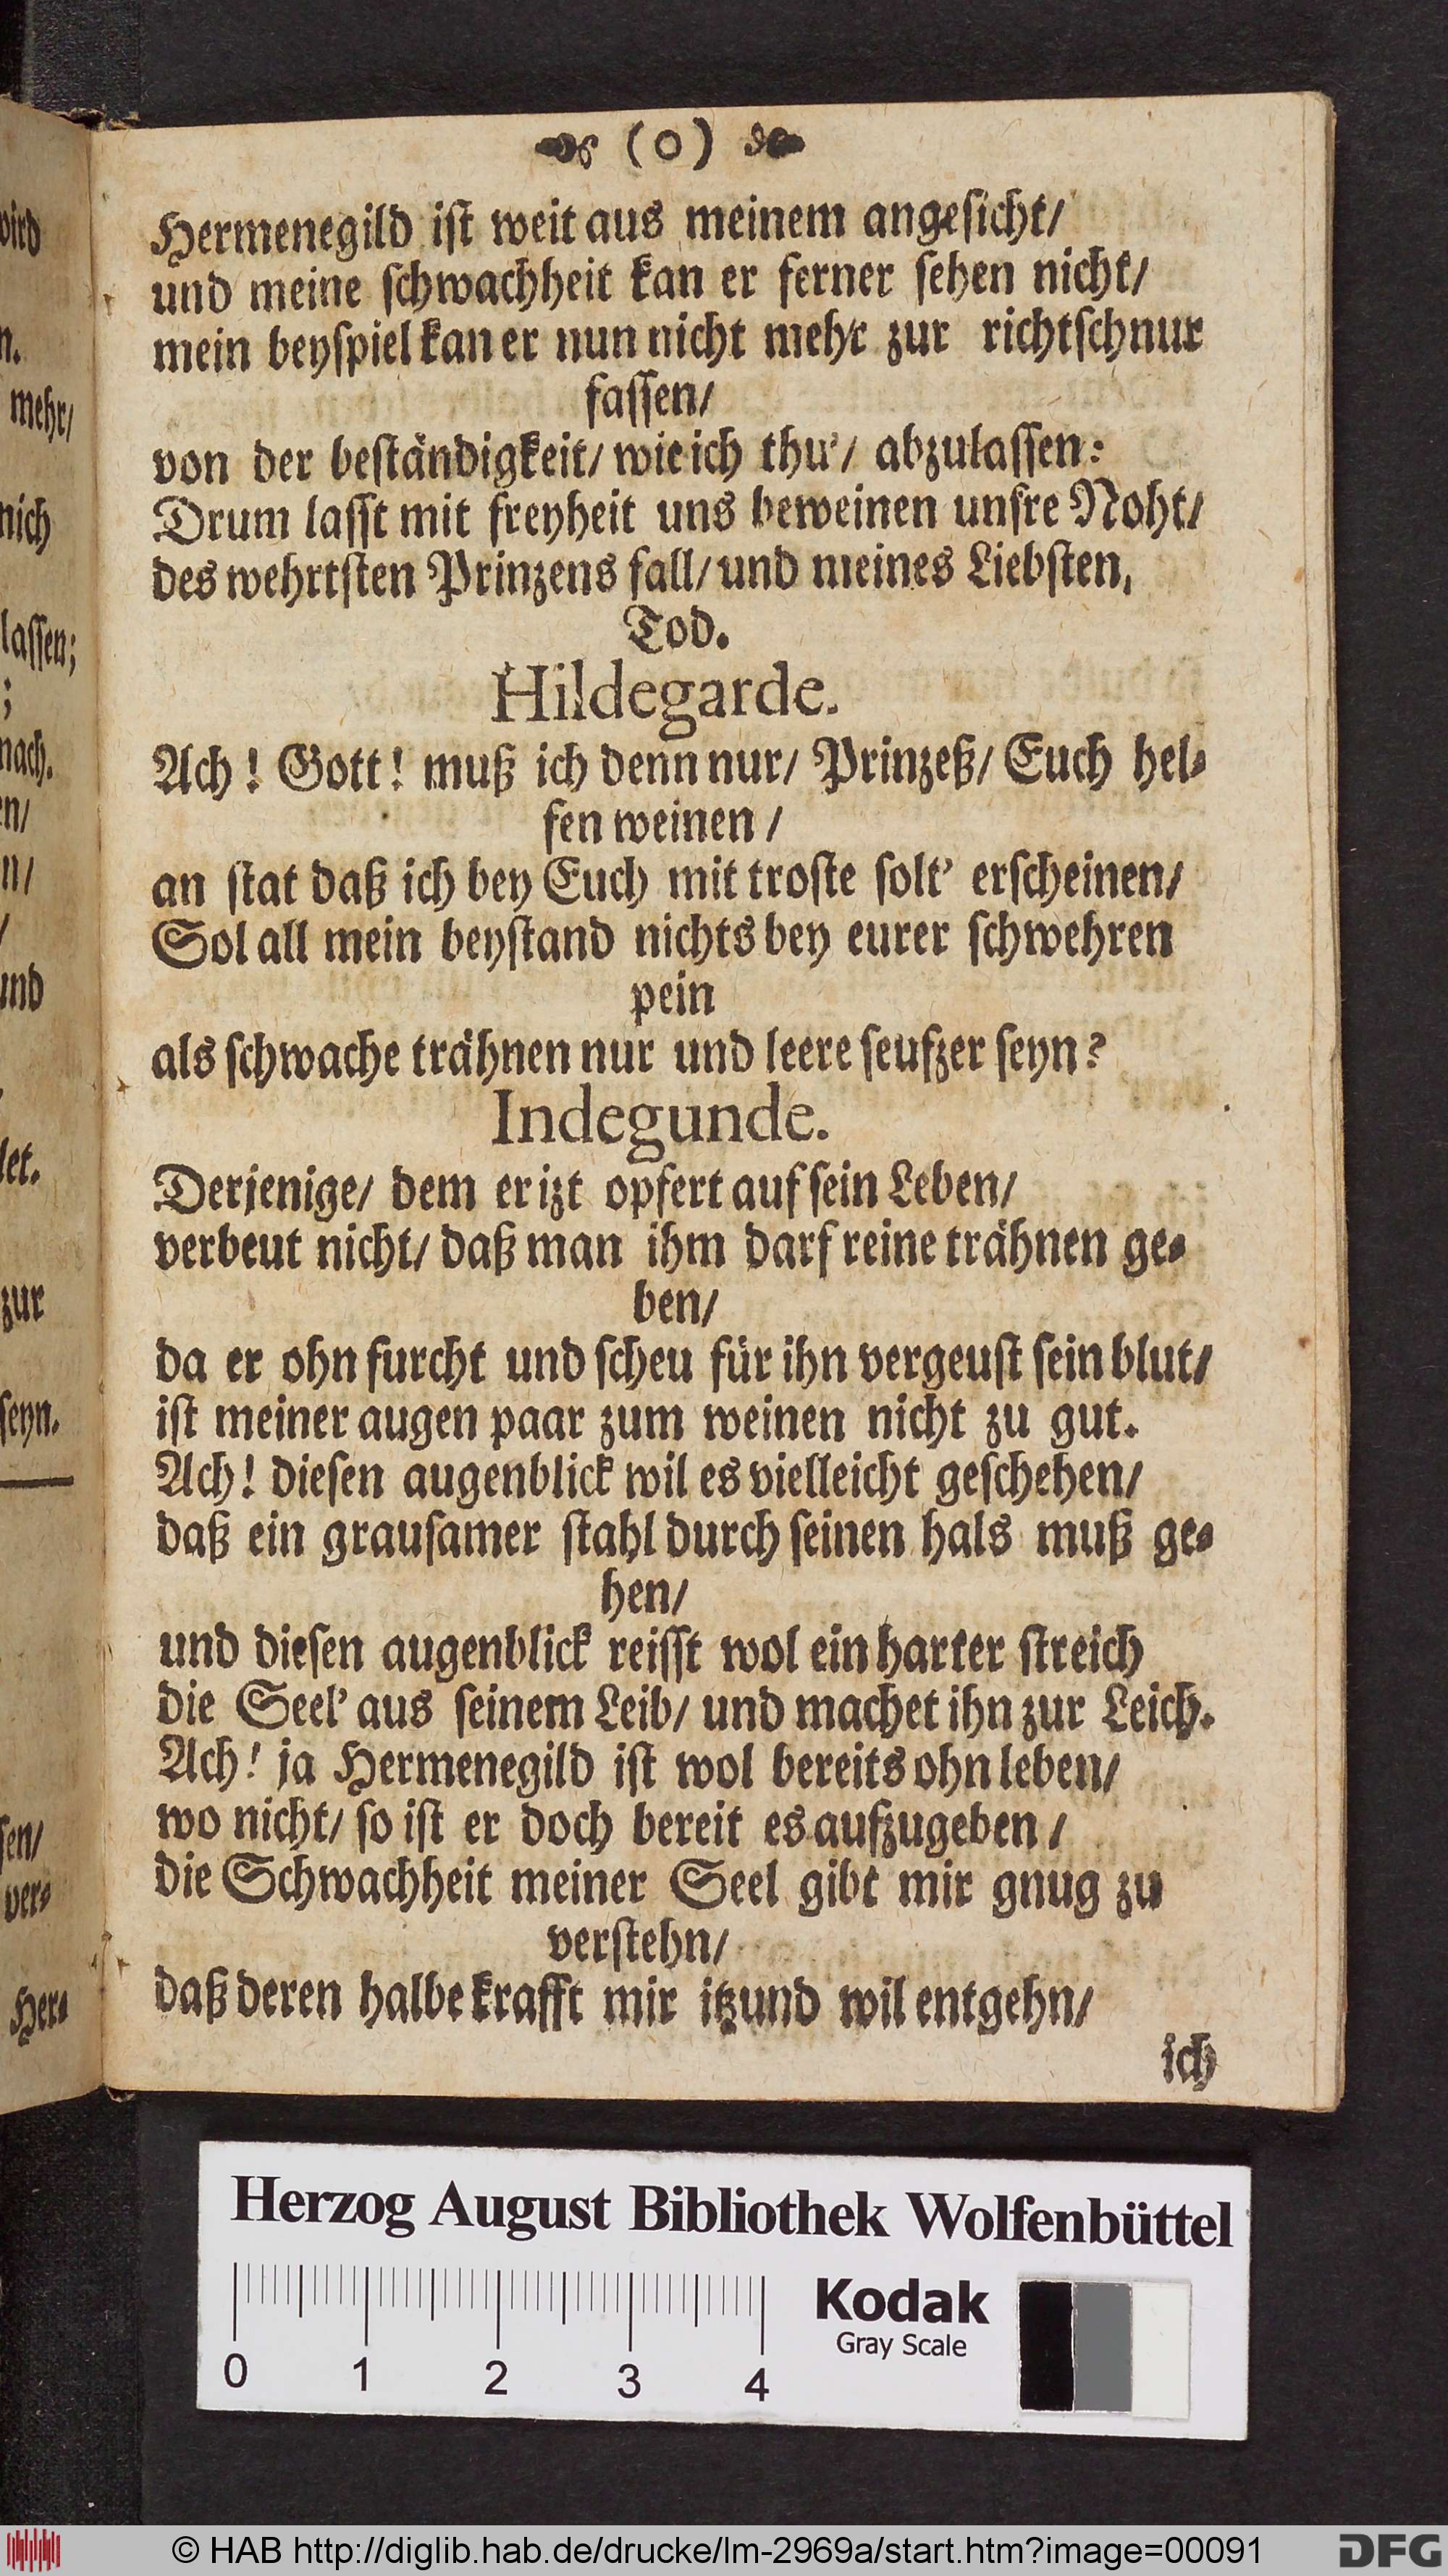 (o)
Hermenegild ist weit aus meinem angesicht/
und meine schwachheit kan er ferner sehen nicht/
mein beyspiel kan er nun nicht mehr zur richtschnur
fassen/
von der beständigkeit/ wie ich thu’/ abzulassen:
Drum lasst mit freyheit uns beweinen unsre Noht/
des wehrtsten Prinzens fall/ und meines Liebsten,
Tod.
Hildegarde.
Ach! Gott! muß ich denn nur/ Prinzeß/ Euch hel-
fen weinen /
an stat daß ich bey Euch mit troste solt’ erscheinen/
Sol all mein beystand nichts bey eurer schwehren
pein
als schwache trähnen nur und leere seufzer seyn?
Indegunde.
Derjenige/ dem er izt opfert auf sein Leben/
verbeut nicht/ daß man ihm darf reine trähnen ge-
ben/
da er ohn furcht und scheu für ihn vergeust sein blut/
ist meiner augen paar zum weinen nicht zu gut.
Ach! diesen augenblick wil es vielleicht geschehen/
daß ein grausamer stahl durch seinen hals muß ge-
hen/
und diesen augenblick reisst wol ein harter streich
die Seel’ aus seinem Leib/ und machet ihn zur Leich.
Ach! ja Hermenegild ist wol bereits ohn leben/
wo nicht/ so ist er doch bereit es aufzugeben /
die Schwachheit meiner Seel gibt mir gnug zu
verstehn/
daß deren halbe krafft mir itzund wil entgehn/
ich
mehr/
lassen;
nach.
zur
seyn.
Her-
Herzog August Bibliothek Wolfenbüttel
0 1 2 3 4
Kodak
Gray Scale
© HAB http://diglib.hab.de/drucke/lm-2969a/start.htm?image=00091
DFG